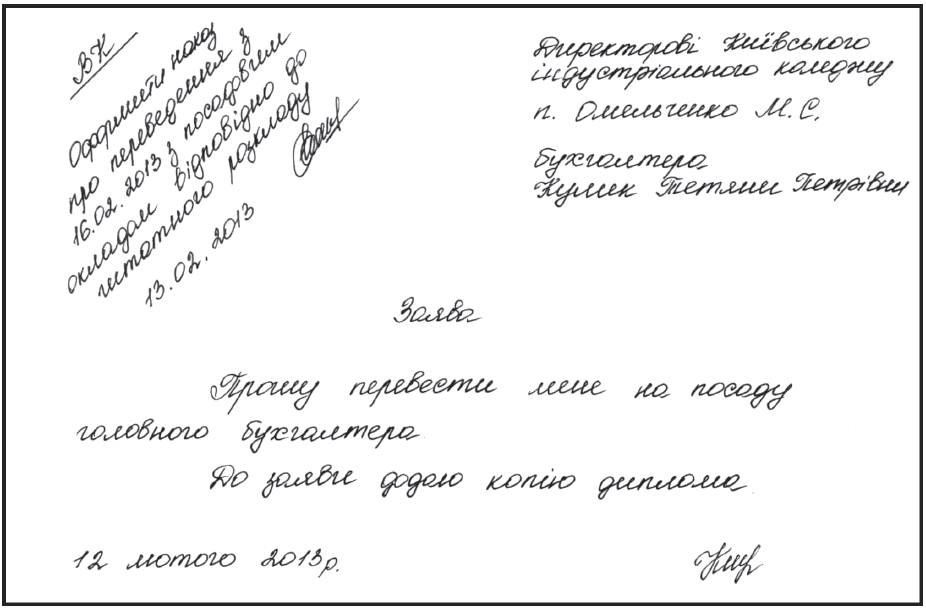 ВК
Оформити наказ
про переведення з
16.02.2013 з посадовим
окладом відповідно до
штатного розкладу
13.02.2013
Директорові Київського
індустріального коледжу
п. Омельченко М.С.
бухгалтера
Кулик Тетяни Петрівни
Заява
Прошу перевести мене на посаду
головного бухгалтера
До заяви додаю копію диплома
12 лютого 2013р.